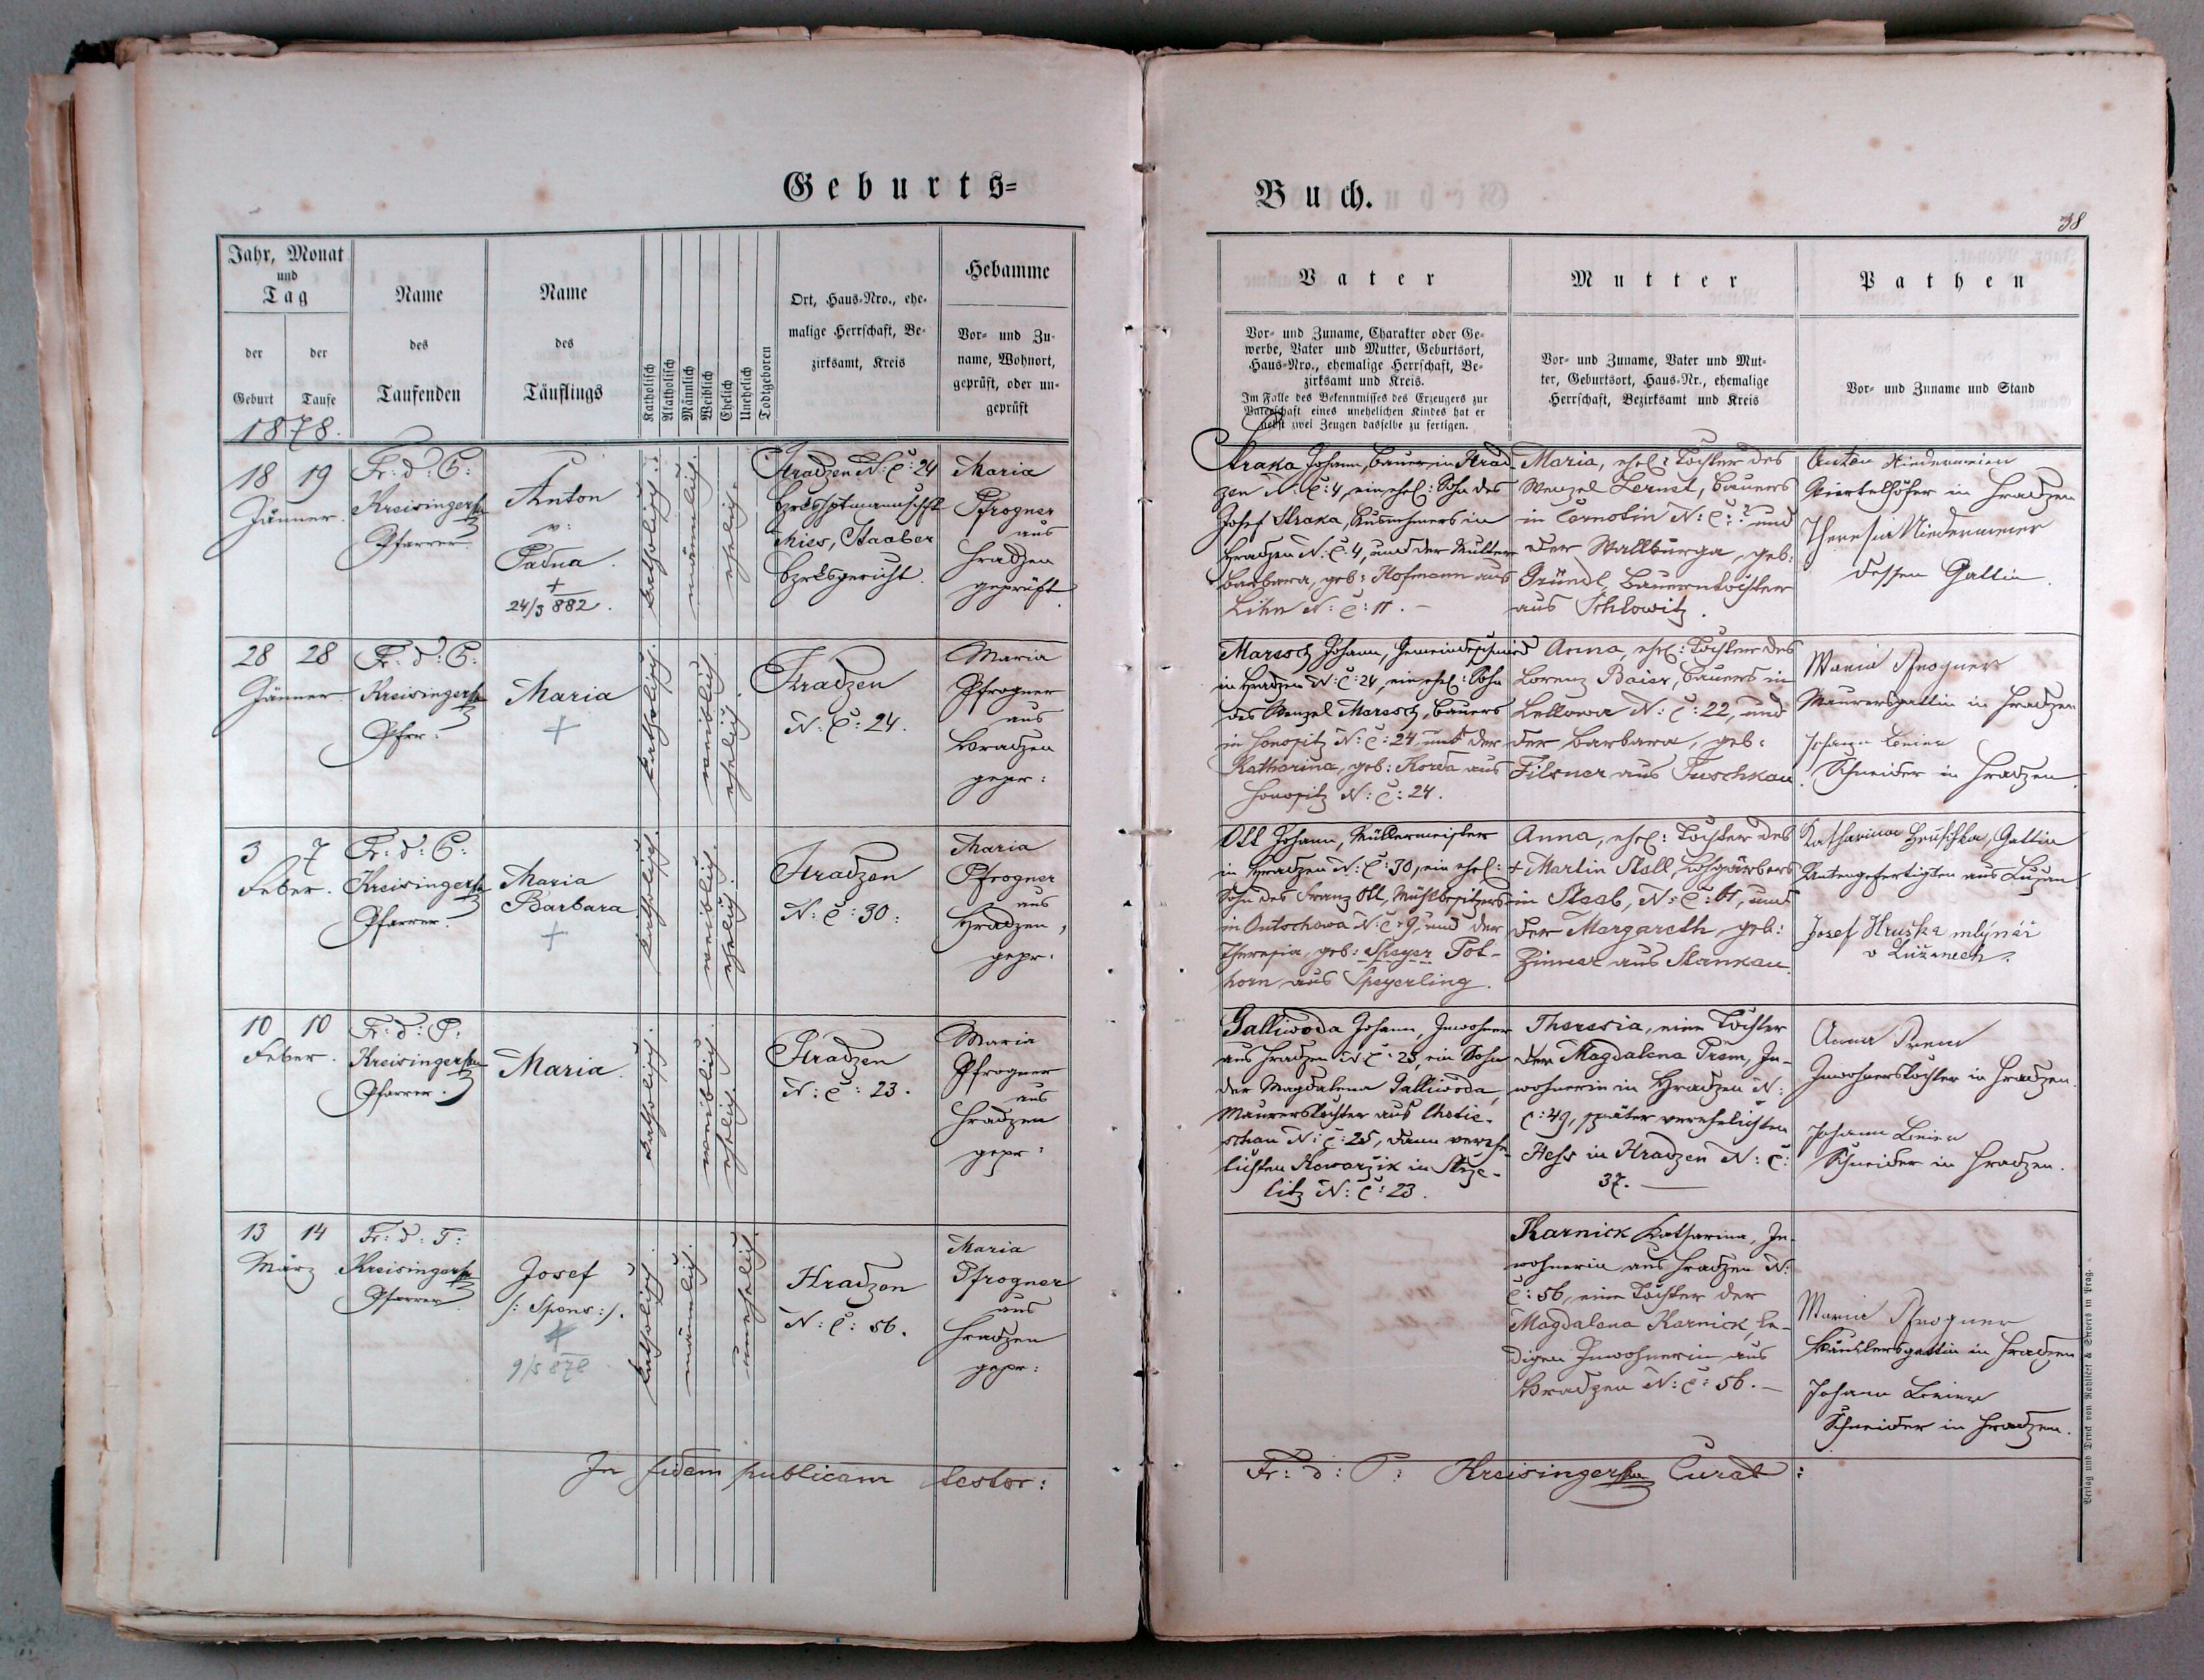 Geburts=
Buch.
38
Jahr, Monat
und
Tag
der
Geburt
der
Taufe
1878.
Name
des
Taufenden
Name
des
Täuflings
Katholisch
Akatholisch
Männlich
Weiblich
Ehelich
Unehelich
Todtgeboren
Ort, Haus-Nro., ehe-
malige Herrschaft, Be-
zirksamt, Kreis
Hebamme
Vor- und Zu-
name, Wohnort,
geprüft, oder un-
geprüft
Vater
Vor- und Zuname, Charakter oder Ge-
werbe, Vater und Mutter, Geburtsort,
Haus-Nro., ehemalige Herrschaft, Be-
zirksamt und Kreis.
Im Falle des Bekenntnisses des Erzeugers zur
Vaterschaft eines unehelichen Kindes hat er
nebst zwei Zeugen dasselbe zu fertigen.
Mutter
Vor- und Zuname, Vater und Mut-
ter, Geburtsort, Haus-Nr., ehemalige
Herrschaft, Bezirksamt und Kreis
Pathen
Vor- und Zuname und Stand
18 19
Jänner.
Fr: d: P:
Kreisinger
Pfarrer
Anton
v:
Padua.
+
24/3 882.
katholisch.
männlich.
ehelich.
Hradzen N: C: 24
Bzrkshptmannschft
Mies, Staaber
Bzrksgericht.
Maria
Pfrogner
aus
Hradzen
geprüft
Straka Johann, Bauer in Hrad
zen N: C: 4, ein ehel: Sohn des
Josef Straka, Ausnehmers in
Hradzen N: C. 4, und der Mutter
Barbara, geb: Hofmann aus
Lihn N: C: 11. –
Maria, ehel: Tochter des
Wenzel Zernet, Bauers
in Cernotin N: C: ? und
der Wallburga, geb:
Gründl, Bauerntochter
aus Schlowitz.
Anton Niedermeier
Viertelhöfer in Hradzen
Theresia Niedermeier
dessen Gattin.
28 28
Jänner
Fr: d: P:
Kreisinger
Pfrr:
Maria
+
katholisch.
weiblich.
ehelich.
Hradzen
N: C: 24.
Maria
Pfrogner
aus
Hradzen
gepr:
Maresch Johann, Gemeindeschmied
in Hradzen N: C: 24, ein ehel: Sohn
des Wenzel Maresch, Bauers
in Honositz N: C: 24 und der
Katharina, geb: Korda aus
Honositz N: C: 24.
Anna, ehel: Tochter des
Lorenz Baier, Bauers in
Lellowa N: C: 22, und
der Barbara, geb:
Filsner aus Tuschkau
Maria Pfrogner
Maurersgattin in Hradzen
Johann Beier
Schneider in Hradzen
3 7
Feber.
Fr: d: P:
Kreisinger
Pfarrer.
Maria
Barbara
+
katholisch.
weiblich.
ehelich.
Hradzen
N: C: 30:
Maria
Pfrogner
aus
Hradzen,
gepr:
Ott Johann, Müllermeister
in Hradzen N: C: 30, ein ehel:
Sohn des Franz Ott, Mühlbesitzers
in Ontschowa N: C: 9, und der
Theresia, geb: Speyer Pot-
horn aus Speyerling.
Anna, ehel: Tochter des
+ Martin Stoll, Lohgärbers
in Staab, N: C: 61, und
der Margareth, geb:
Zinner aus Stankau.
Katharina Hruschka, Gattin
Untengefertigten aus Luzan
Josef Hruška mlýnář
v Lužanech.
10 10
Feber.
Fr: d: P:
Kreisinger
Pfarrer.
Maria.
katholisch.
weiblich.
ehelich.
Hradzen
N: C: 23.
Maria
Pfrogner
aus
Hradzen
gepr:
Galliwoda Johann, Inwohner
aus Hradzen N: C: 23, ein Sohn
der Magdalena Galliwoda,
Maurerstochter aus Chotie-
schau N: C: 25, dann verehe-
lichten Kowarzik in Stře-
litz N: C: 23.
Theresia, eine Tochter
der Magdalena Prem, In-
wohnerin in Hradzen N:
C: 49, später verehelichten
Hess in Hradzen N: C:
37. –
Anna Prem
Inwohnerstochter in Hradzen.
Johann Beier
Schneider in Hradzen.
13 14
März
Fr: d: P:
Kreisinger
Pfarrer
Josef
/: Spons :/.
+
9/5 878
katholisch.
männlich.
unehelich.
Hradzen
N: C: 56.
Maria
Pfrogner
aus
Hradzen
gepr:
Karnick Katharina, In-
wohnerin aus Hradzen N:
C: 56, eine Tochter der
Magdalena Karnick, le-
digen Inwohnerin aus
Hradzen N: C: 56. –
Maria Pfrogner
Häuslersgattin in Hradzen
Johann Beier
Schneider in Hradzen.
In fidem publicam testor:
Fr: d: P: Kreisinger Curat:
Verlag und Druck von Rohliček & Sievers in Prag.